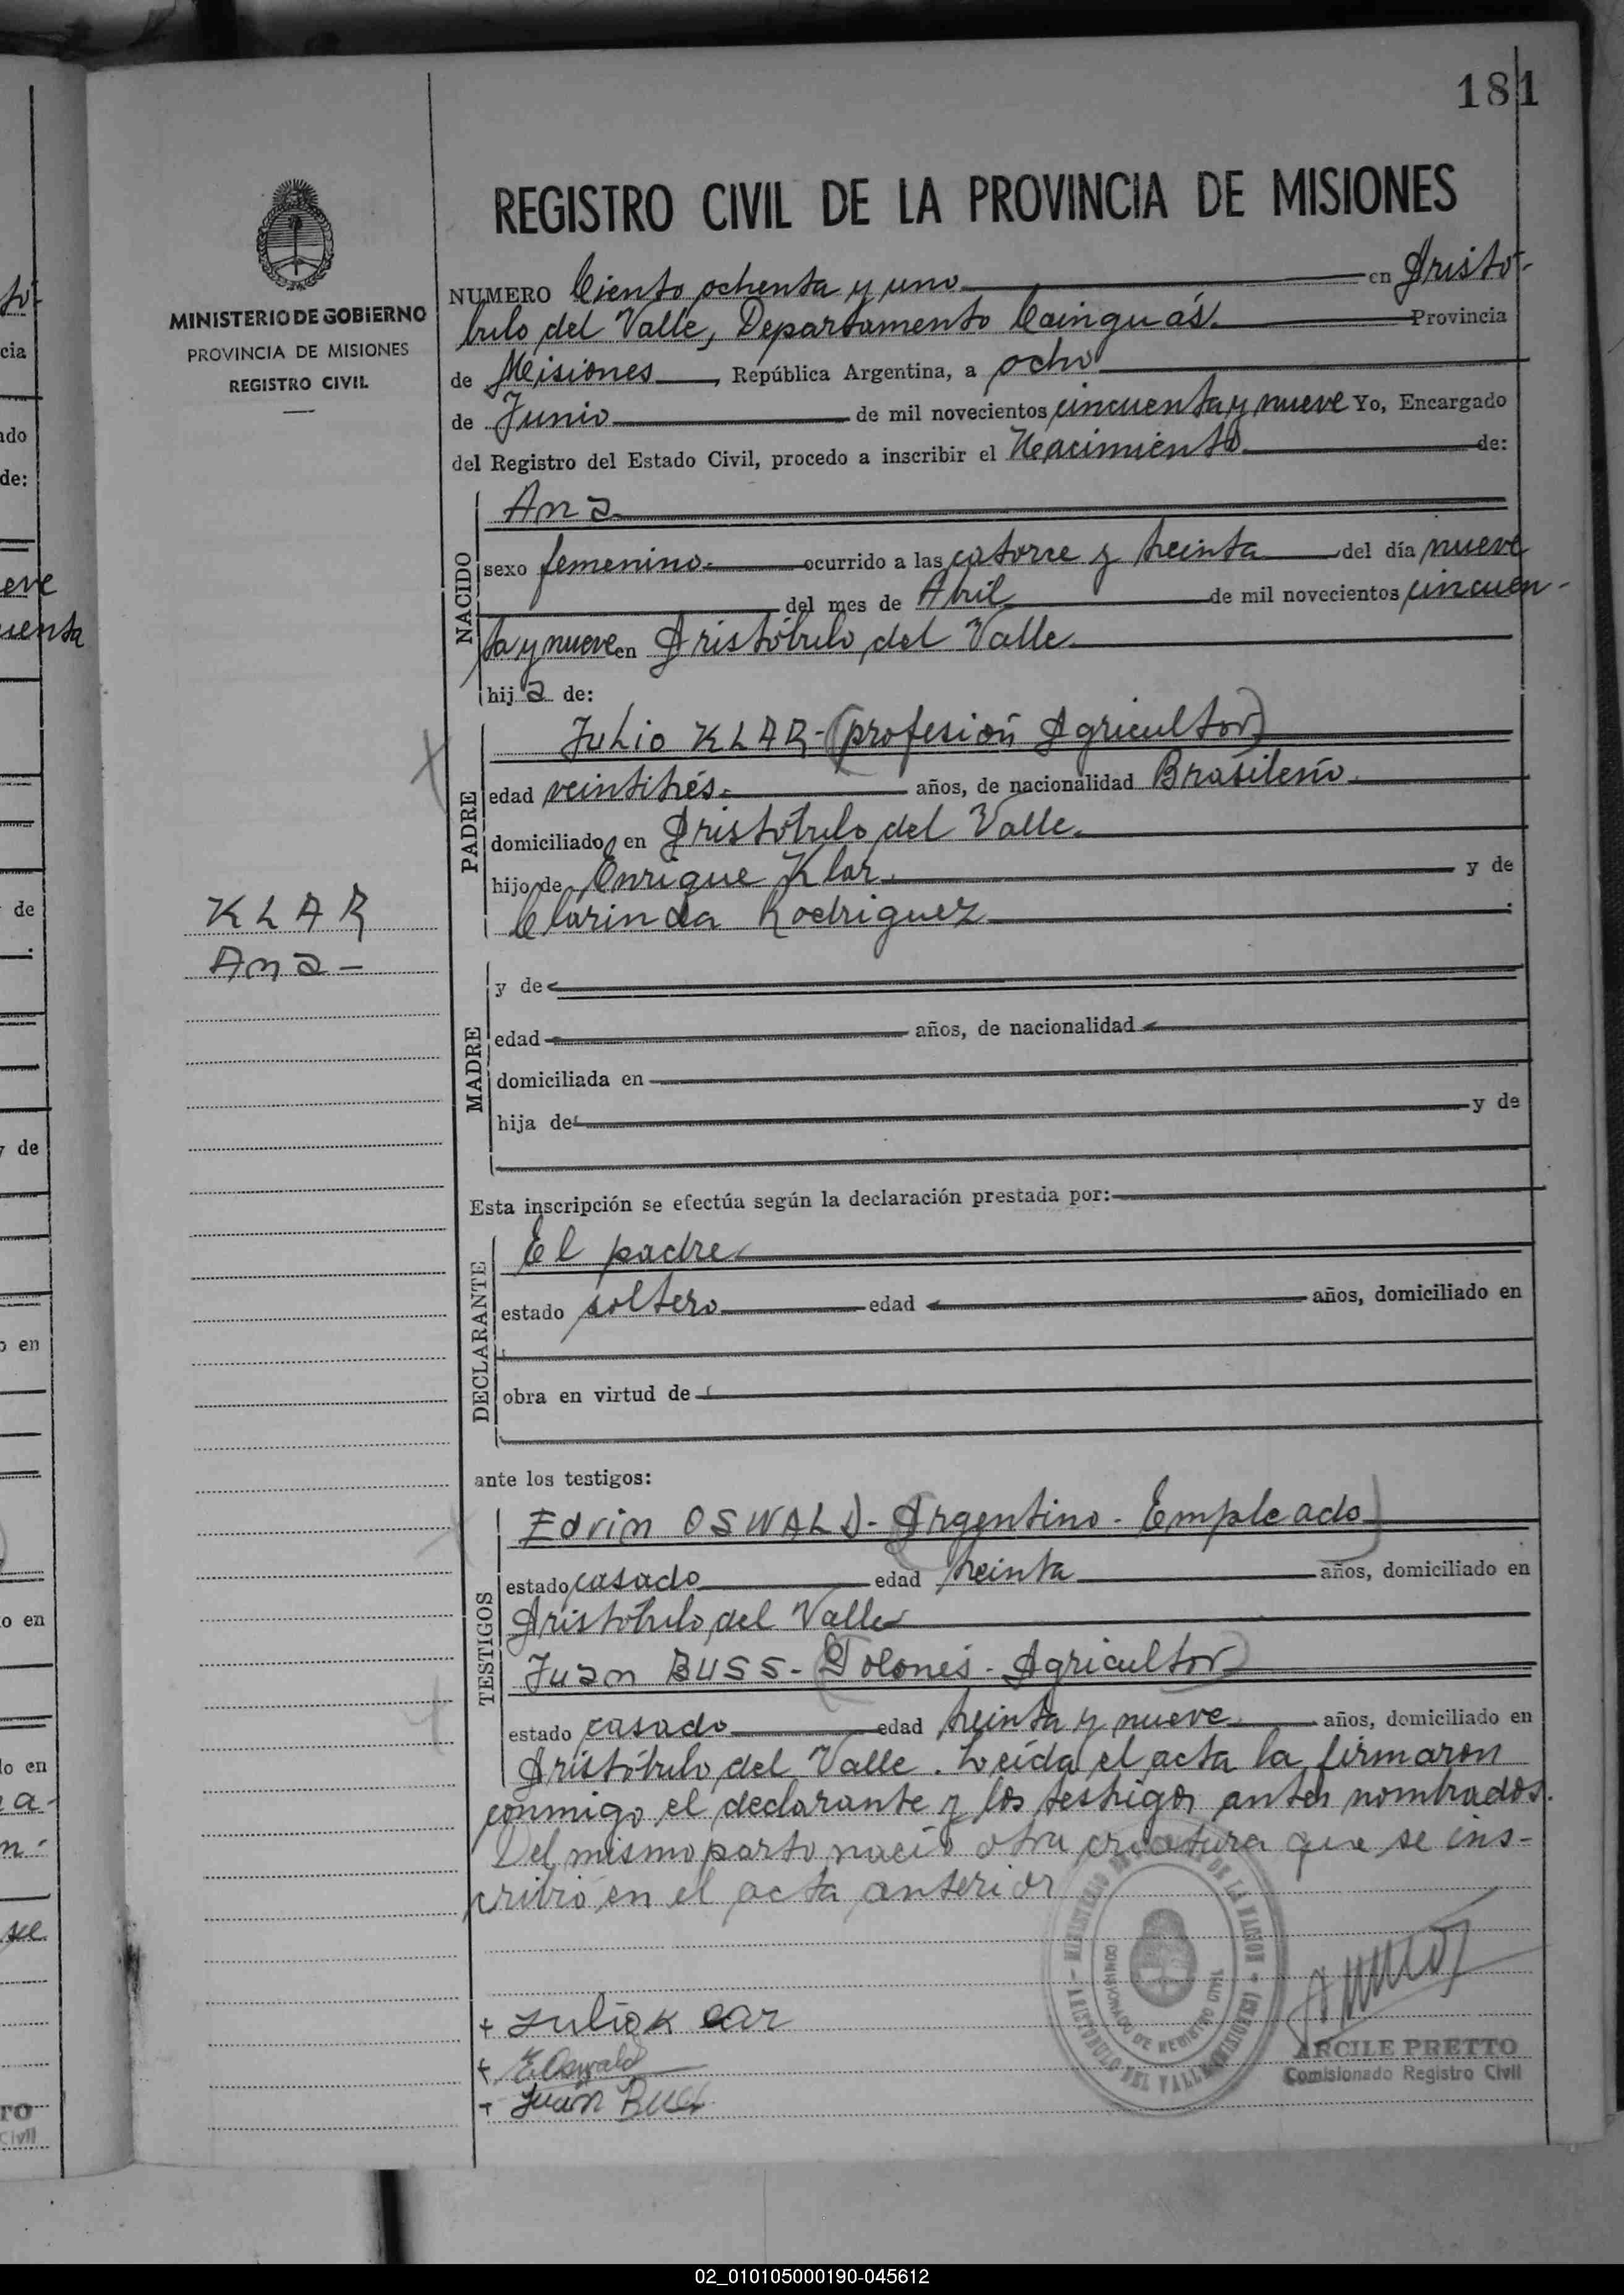 181
REGISTRO CIVIL DE LA PROVINCIA DE MISIONES
MINISTERIO DE GOBIERNO
PROVINCIA DE MISIONES
REGISTRO CIVIL
NUMERO Ciento ochenta y uno en Aristó-
bulo del Valle, Departamento Cainguás. Provincia
de Misiones, República Argentina, a ocho
de Junio de mil novecientos cincuenta y nueve Yo, Encargado
del Registro del Estado Civil, procedo a inscribir el Nacimiento de:
NACIDO
Ana
sexo femenino. ocurrido a las catorce y treinta del día nueve
del mes de Abril de mil novecientos cincuen-
ta y nueve en Aristóbulo del Valle
hija de:
PADRE
Julio KLAR - (profesión Agricultor)
edad veintitrés. años, de nacionalidad Brasileño.
domiciliado en Aristóbulo del Valle.
hijo de Enrique Klar. y de
Clarinda Rodriguez
KLAR
Ana -
MADRE
y de
edad años, de nacionalidad
domiciliada en
hija de y de
Esta inscripción se efectúa según la declaración prestada por:
DECLARANTE
El padre
estado soltero edad años, domiciliado en
obra en virtud de
ante los testigos:
TESTIGOS
Edvin OSWALD - (Argentino - Empleado)
estado casado edad treinta años, domiciliado en
Aristóbulo del Valle
Juan BUSS - (Polonés - Agricultor)
estado casado edad treinta y nueve años, domiciliado en
Aristóbulo del Valle. Leída el acta la firmaron
conmigo el declarante y los testigos antes nombrados.
Del mismo parto nació otra criatura que se ins-
cribió en el acta anterior
+ Julio K lar
+ E. Oswald
+ Juan Buss
ARCILE PRETTO
Comisionado Registro Civil
02_010105000190-045612